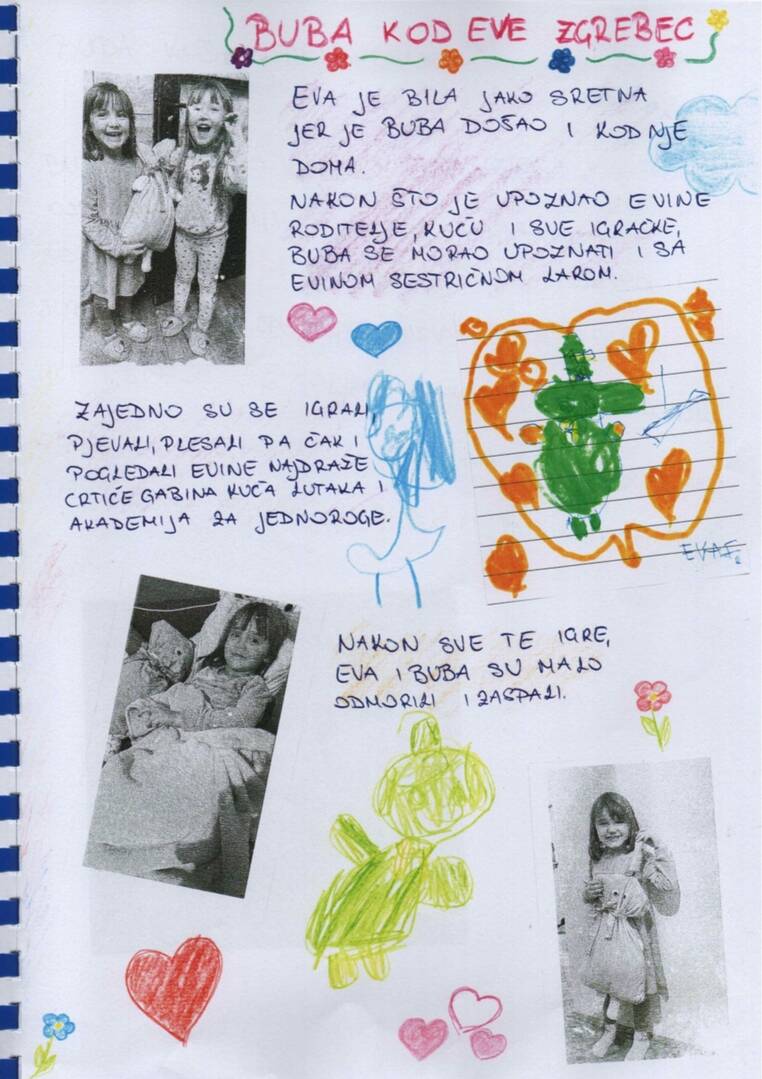 BUBA KOD EVE ZGREBEC
EVA JE BILA JAKO SRETNA
JER JE BUBA DOŠAO I KOD NJE
DOMA.
NAKON ŠTO JE UPOZNAO EVINE
RODITELJE, KUĆU I SVE IGRAČKE,
BUBA SE MORAO UPOZNATI I SA
EVINOM SESTRIČNOM LAROM.
ZAJEDNO SU SE IGRALI,
PJEVALI, PLESALI PA ČAK I
POGLEDALI EVINE NAJDRAŽE
CRTIĆE GABINA KUĆA LUTAKA I
AKADEMIJA ZA JEDNOROGE.
NAKON SVE TE IGRE,
EVA I BUBA SU MALO
ODMORILI I ZASPALI.